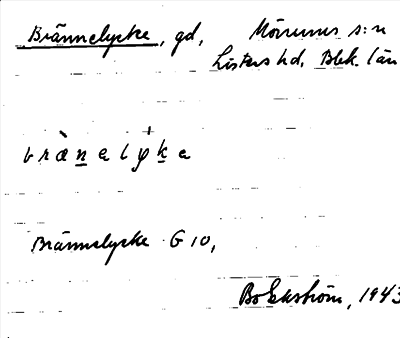 Brännelycke, gd, Mörrums s:n
Listers hd. Blek. län
bræ̀nelyka
Brännelycke G 10,
Bo Ekström, 1943